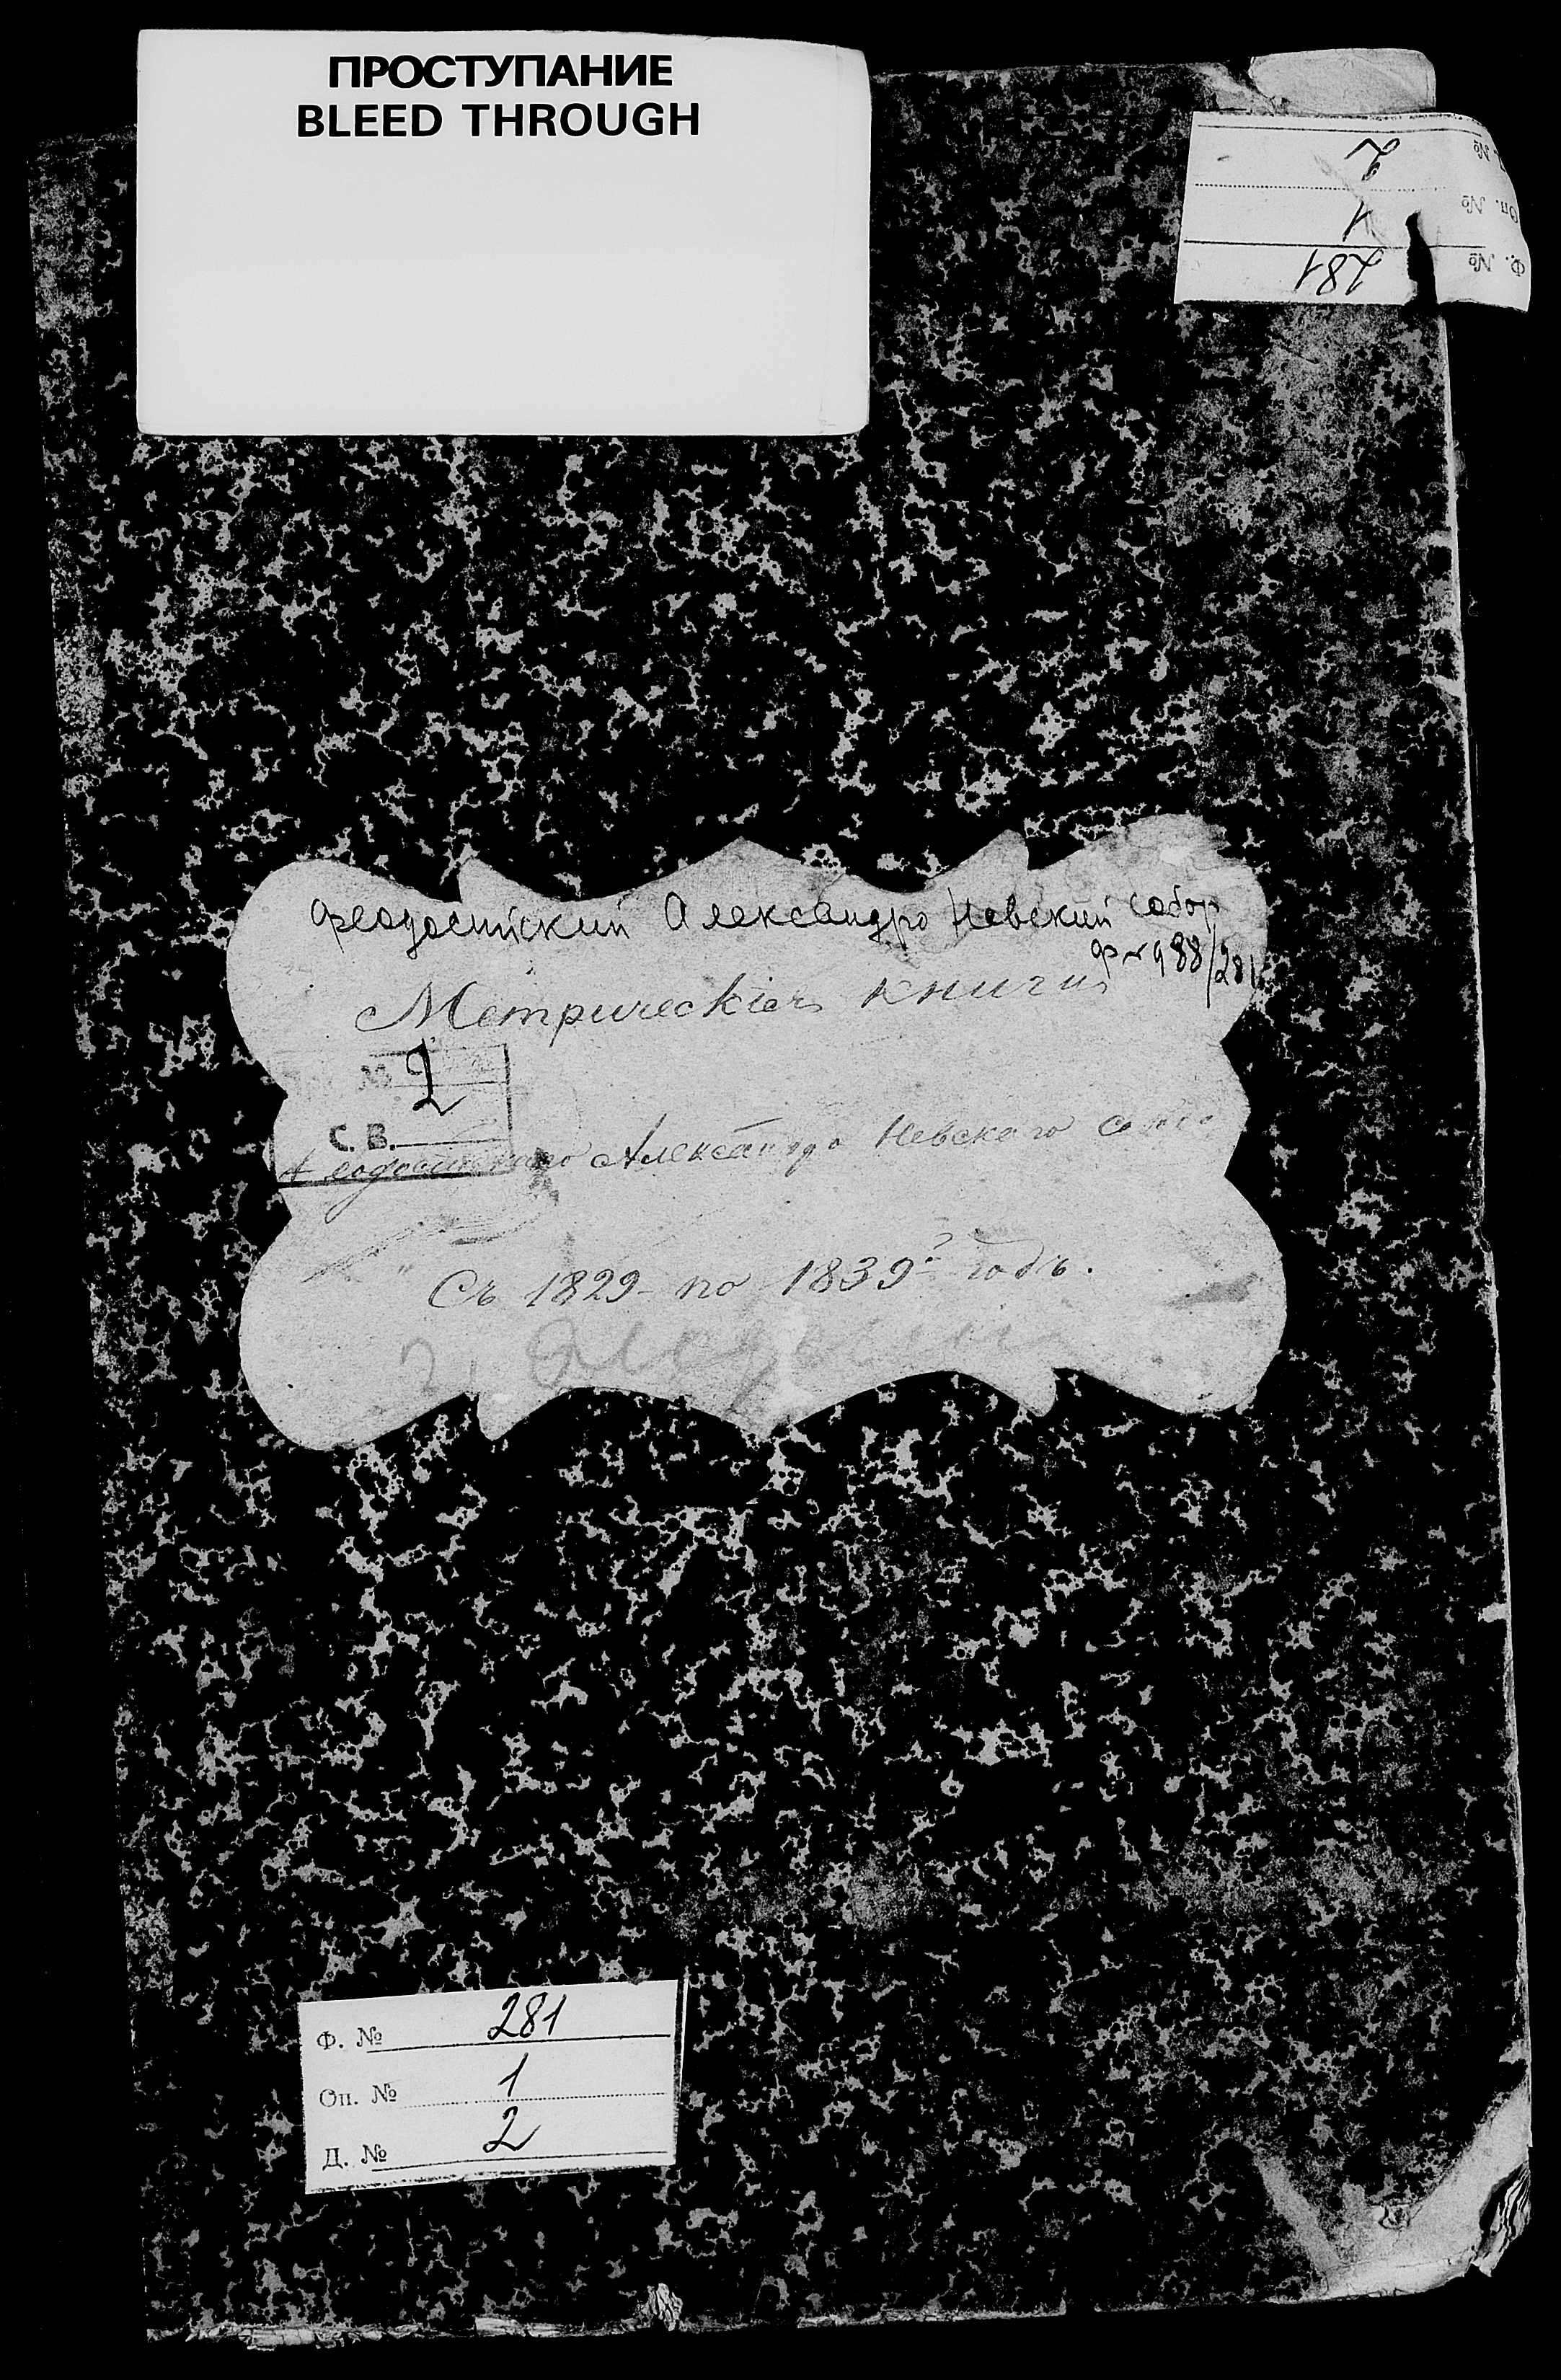 ПРОСТУПАНИЕ
BLEED THROUGH
Д. № 2
Оп. № 1
Ф. № 281
Феодосийский Александро Невский собор
Ф № 988/281
Метрическія книги
№ 2
С. В.
Александро Невского
Съ 1829 по 1839 годъ.
г. Феодосии
Ф. № 281
Оп. № 1
Д. № 2